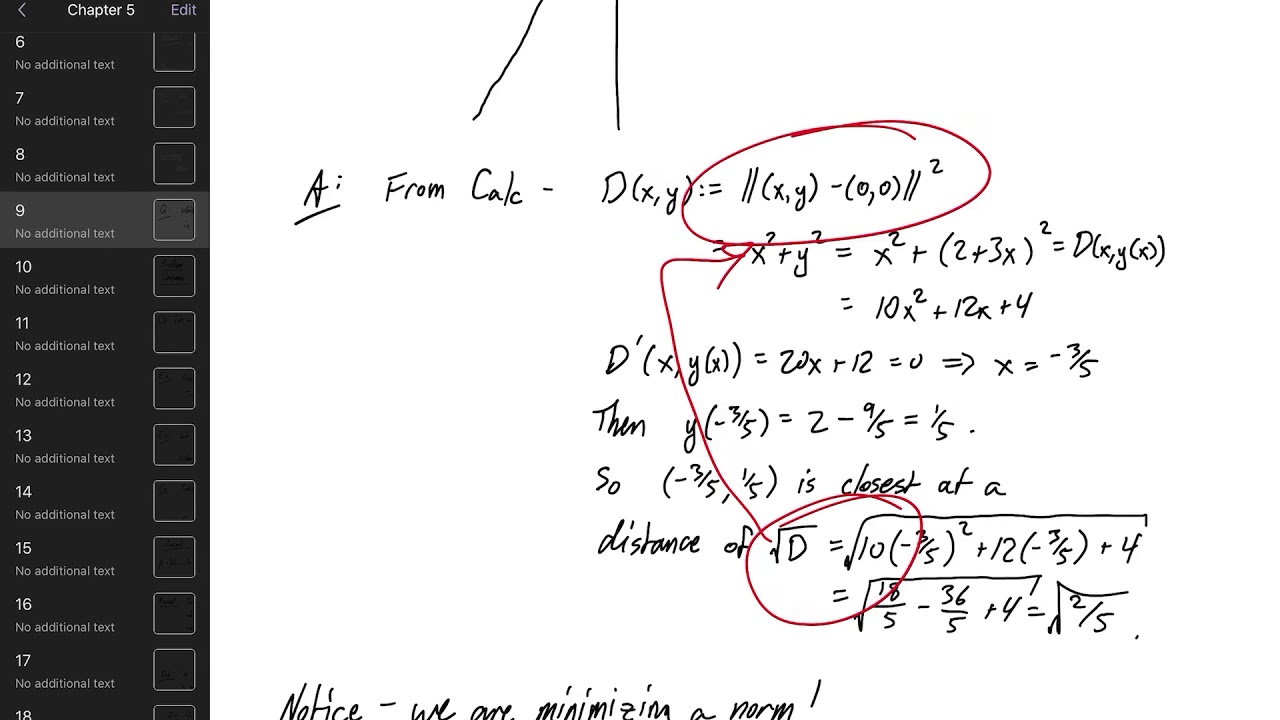 Chapter 5
Edit
6
No additional text
7
No additional text
8
No additional text
9
No additional text
10
No additional text
11
No additional text
12
No additional text
13
No additional text
14
No additional text
15
No additional text
16
No additional text
17
No additional text
18
A: From Calc - D(x,y) := ||(x,y) - (0,0)||²
= x² + y² = x² + (2+3x)² = D(x,y(x))
= 10x² + 12x + 4
D'(x,y(x)) = 20x + 12 = 0 => x = -3/5
Then y(-3/5) = 2 - 9/5 = 1/5 .
So (-3/5, 1/5) is closest at a
distance of √D = √10(-3/5)² + 12(-3/5) + 4
= √18/5 - 36/5 + 4 = √2/5 .
Notice - we are minimizing a norm!